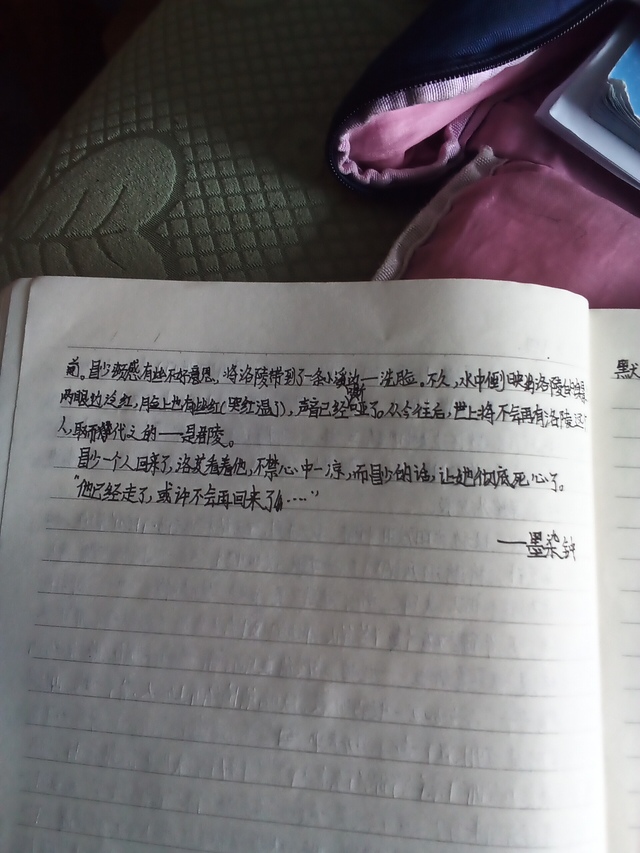 前。昌少频感有些不好意思，将洛陵带到了一条小溪边——洗脸。不久，水中倒映的洛陵
两眼边泛红，脸上也有些红（哭红温了），声音已经嘶哑了。从今往后，世上将不会再有洛陵这个
人，取而代之的——是君陵。
昌少一个人回来了，洛芷看着他，不禁心中一凉，而昌少的话，让她彻底死心了。
“他已经走了，或许不会再回来了……”
——墨染
默